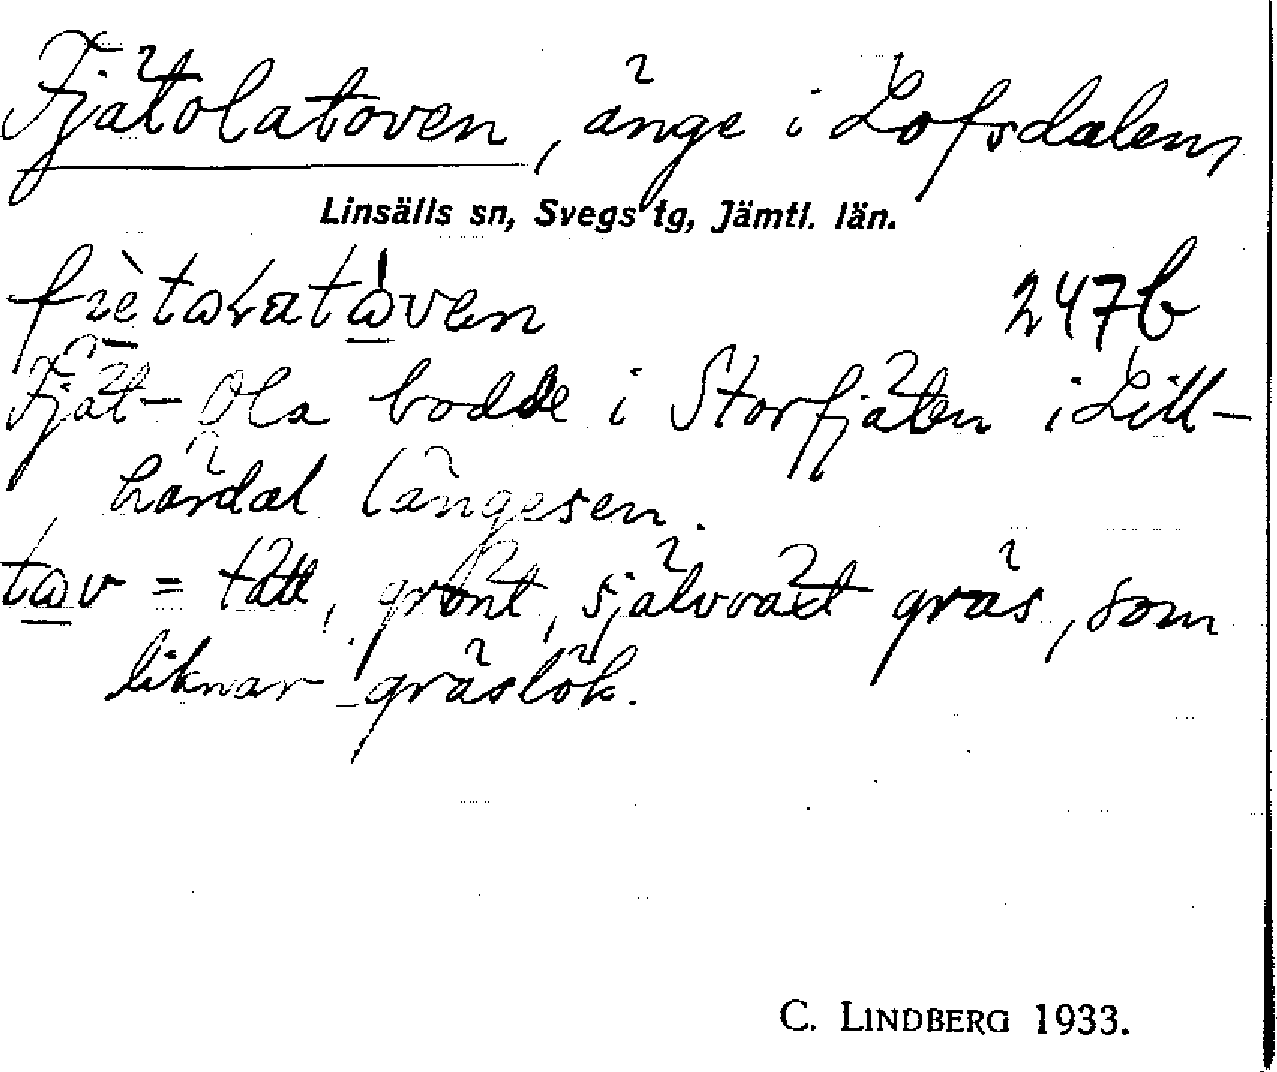 Fjätolatoven, änge i Lofsdalen,
Linsälls sn, Svegs tg, Jämtl. län.
247b
Fjät-Ola bodde i Storfjäten i Lill-
härdal längesen.
tωv = tätt, grönt, självvået gräs, som
liknar gräslök.
C. LINDBERG 1933.